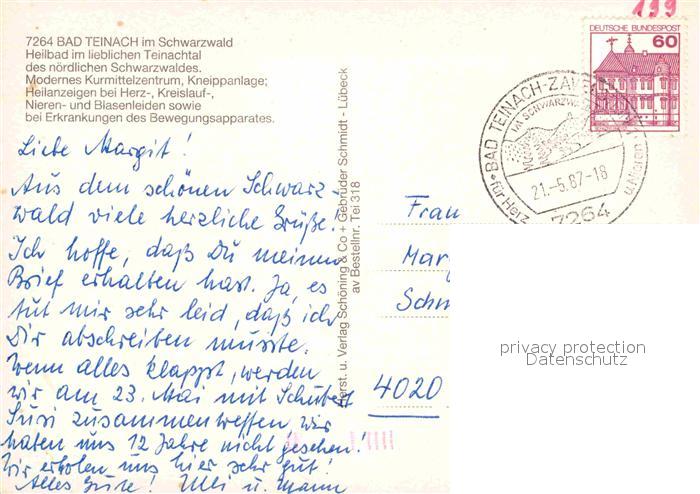 7264 BAD TEINACH im Schwarzwald
Heilbad im lieblichen Teinachtal
des nördlichen Schwarzwaldes.
Modernes Kurmittelzentrum, Kneippanlage;
Heilanzeigen bei Herz-, Kreislauf-,
Nieren- und Blasenleiden sowie
bei Erkrankungen des Bewegungsapparates.
Liebe Margit!
Aus dem schönen Schwarz-
wald viele herzliche Grüße!
Ich hoffe, daß Du meinen
Brief erhalten hast. Ja, es
tut mir sehr leid, daß ich
Dir abschreiben musste.
Wenn alles klappt, werden
wir am 23. Mai mit Schubert
Susi zusammentreffen, wir
haben uns 12 Jahre nicht gesehen!
Wir erholen uns hier sehr gut!
Alles Gute! Ulli u. Mann
Herst. u. Verlag Schöning & Co + Gebrüder Schmidt - Lübeck
av Bestellnr. Tei 318
199
DEUTSCHE BUNDESPOST
60
BAD TEINACH-ZAV
IM SCHWARZWA
21.-5.87-18
für Herz
u. Nieren
7264
Frau
Mar
Schm
4020
privacy protection
Datenschutz